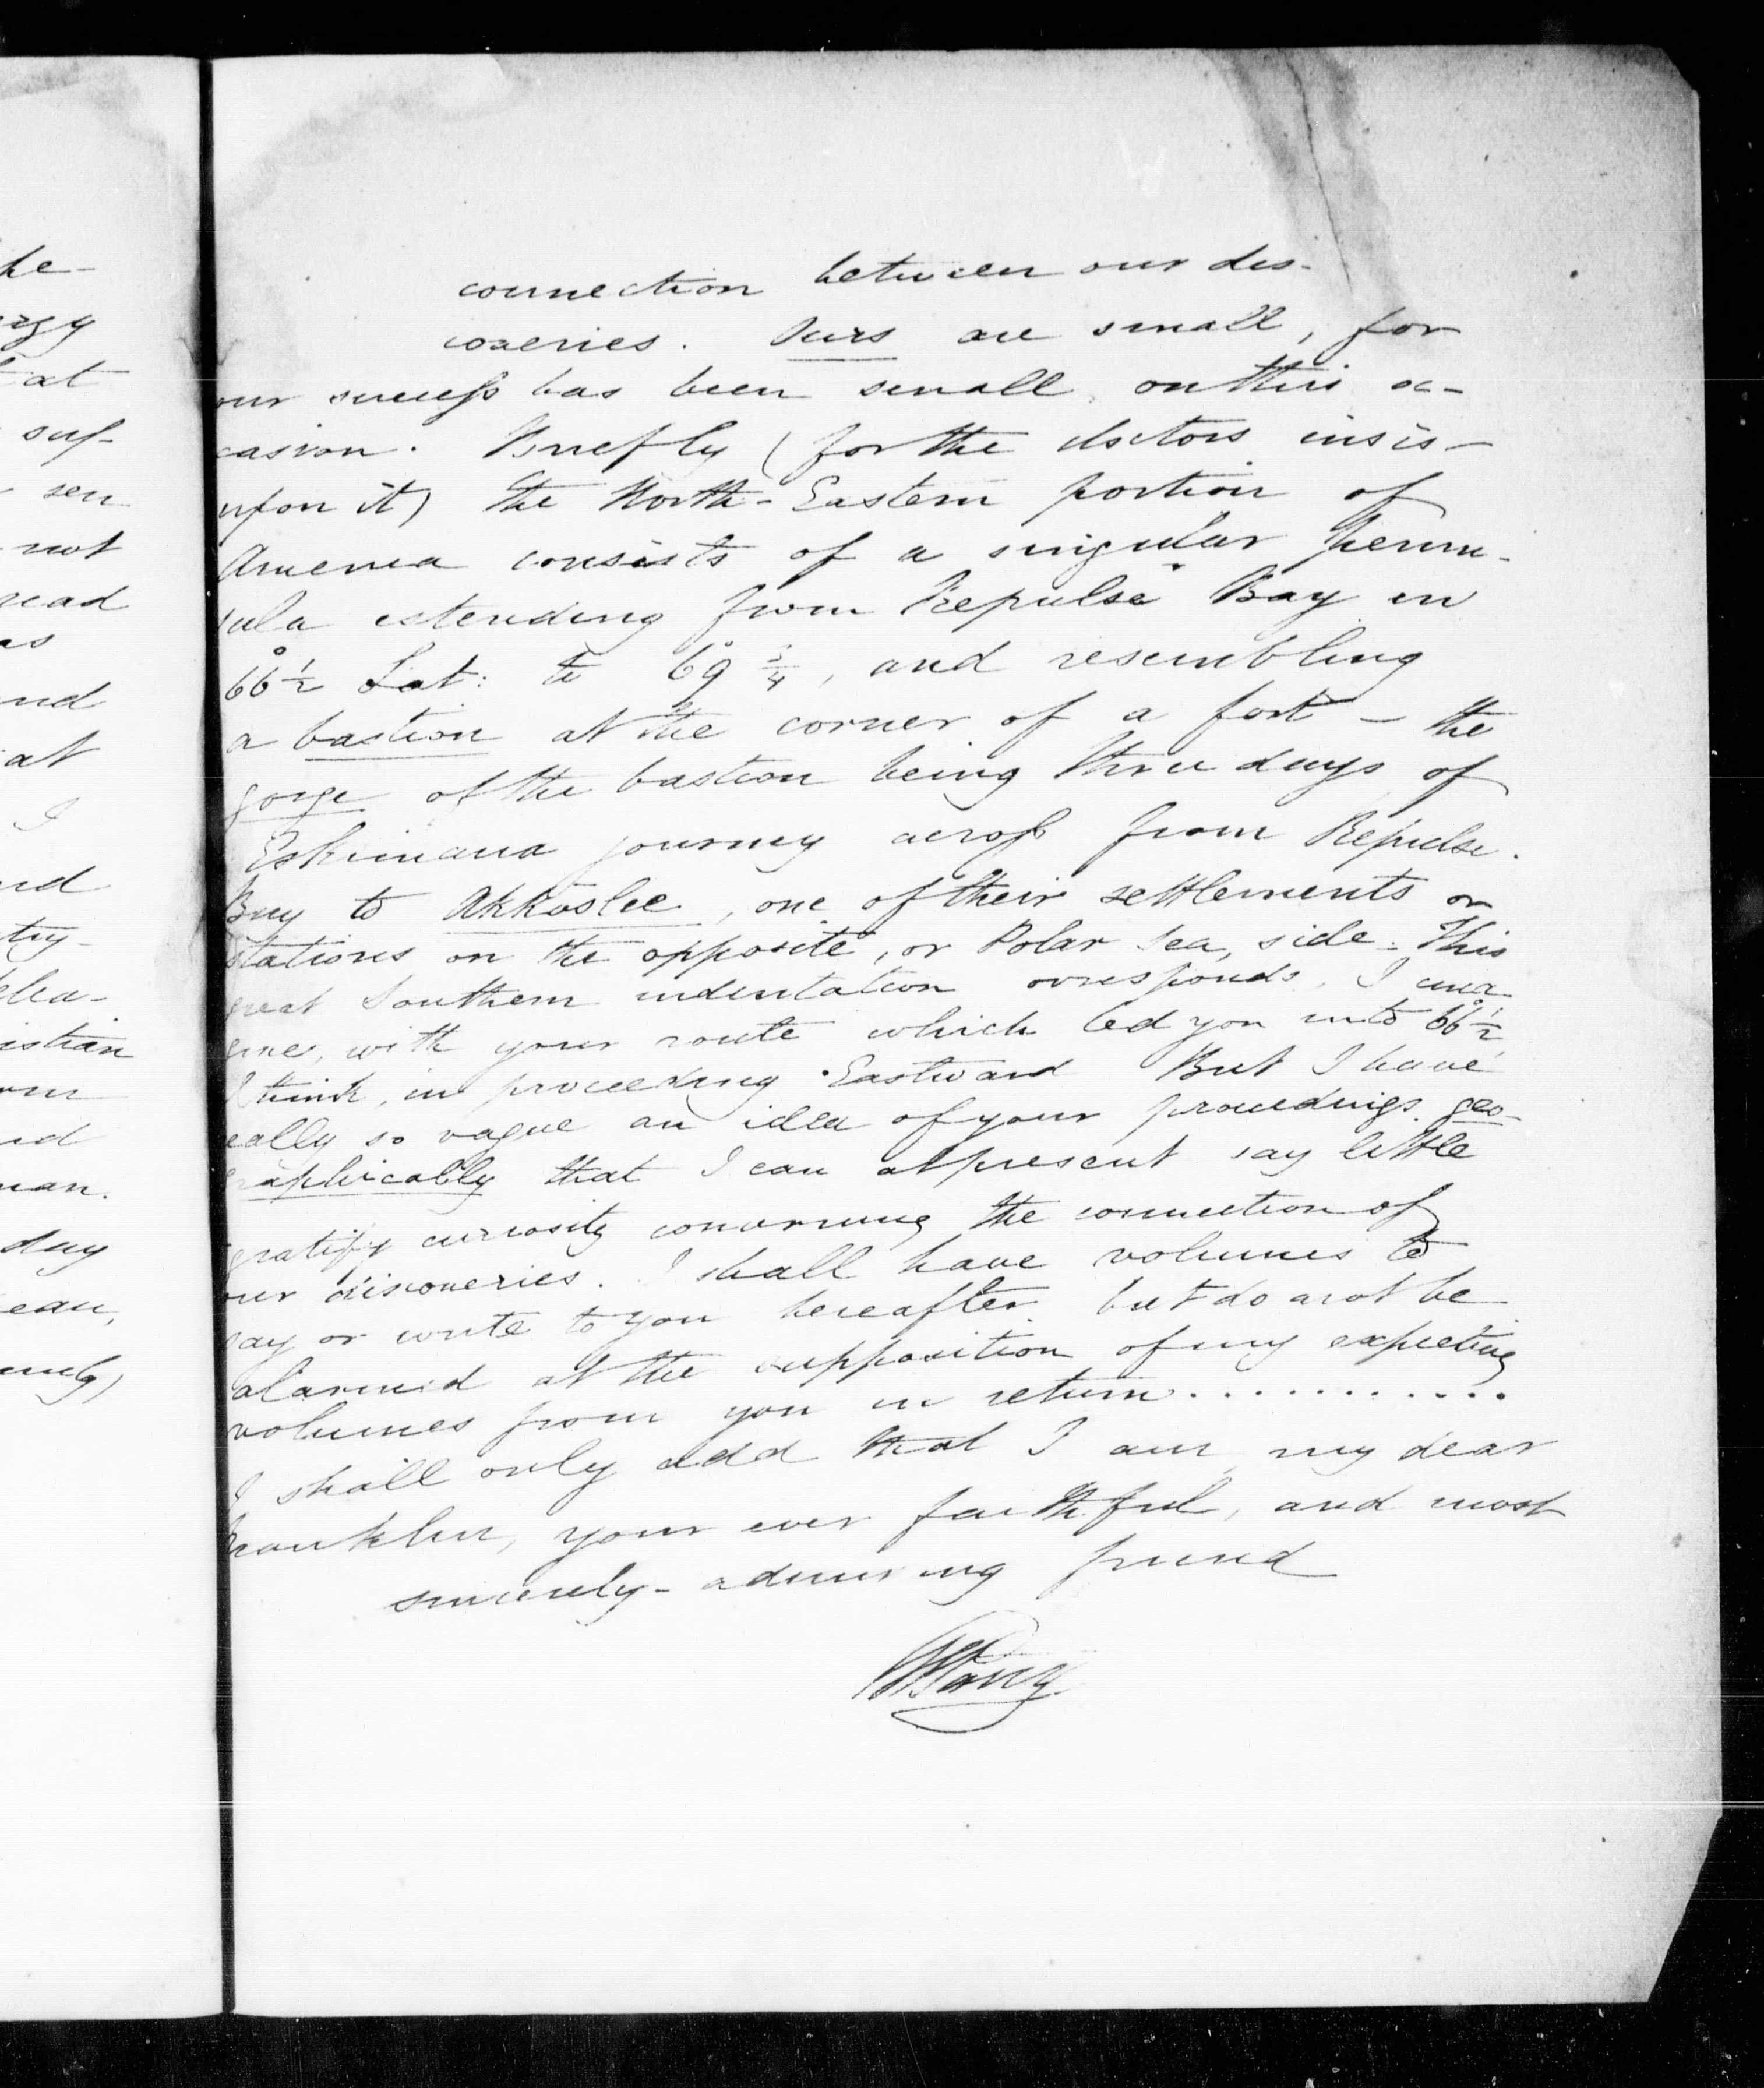 he-
rgy
at
suf-
sen
not
read
as
nd
at
I
nd
try-
lea-
istian
nd
man.
day
ean,
connection between our dis-
coveries. Ours are small, for
our success has been small on this oc-
casion. Briefly (for the doctors insis-
upon it) the North-Eastern portion of
America consists of a singular penin-
sula extending from Repulse Bay in
66°½ Lat: to 69°¾, and resembling
a bastion at the corner of a fort - the
gorge of the bastion being three days of
Eskimaux journey across from Repulse.
Bay to Akkoolee, one of their settlements or
stations on the opposite, or Polar Sea, side. This
great Southern indentation corresponds, I ima
gine, with your route which led you into 66°½,
I think, in proceeding Eastward But I have
eally so vague an idea of your proceedings geo-
raphically that I can at present say little
gratify curiosity concerning the connection of
our discoveries. I shall have volumes to
say or write to you hereafter but do not be
alarmed at the supposition of my expecting
volumes from you in return............
I shall only add that I am, my dear
Franklin, your ever faithful, and most
sincerely-admiring friend
WParry